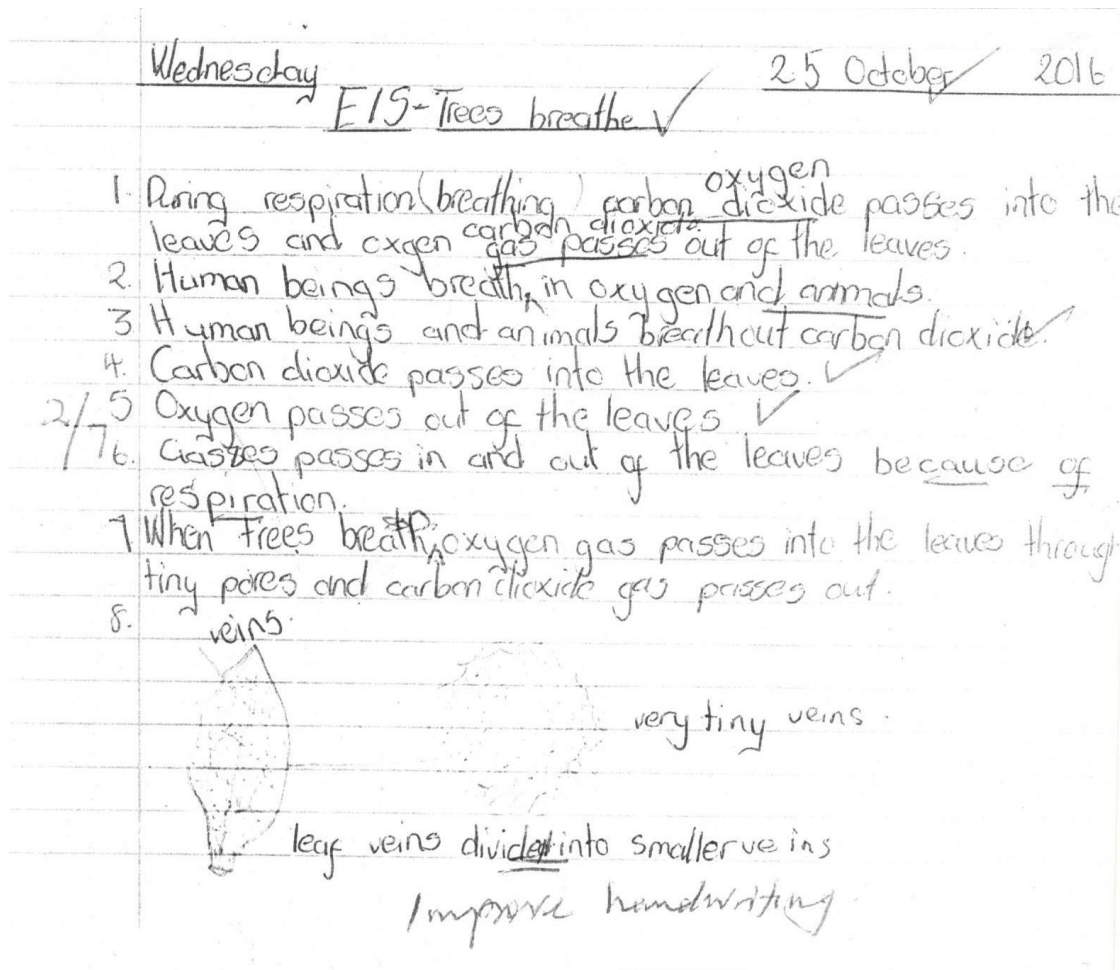 Wednesday 25 October 2016
E/S-Trees breathe ✓
oxygen
1. During respiration (breathing) carbon dioxide passes into the
carbon dioxide
leaves and oxgen gas passes out of the leaves.
2. Human beings breath in oxygen and animals.
3 Human beings and animals breathout carbon dioxide.
4. Carbon dioxide passes into the leaves.
5 Oxygen passes out of the leaves
2/7
6. Gasses passes in and out of the leaves because of
respiration.
7 When trees breath, oxygen gas passes into the leaves through
tiny pores and carbon dioxide gas passes out.
8.
veins.
very tiny veins.
leaf veins divided into smaller veins
Improve handwriting